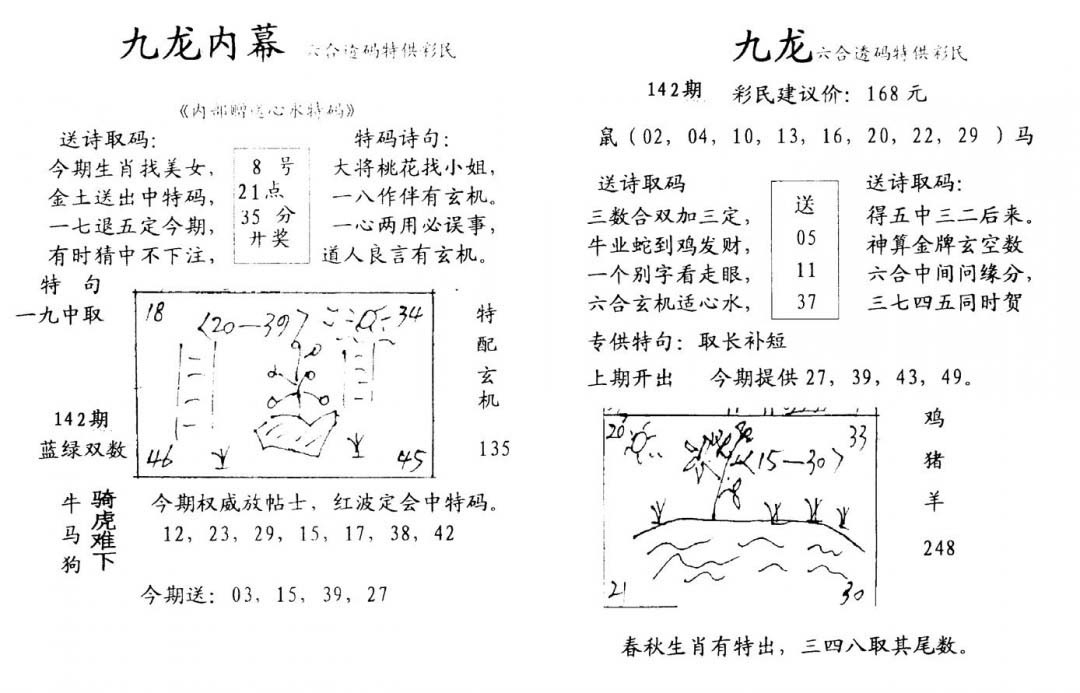 九龙内幕 六合透码特供彩民
《内部赠送心水特码》
送诗取码：
今期生肖找美女，
金土送出中特码，
一七退五定今期，
有时猜中不下注，
8 号
21点
35 分
开奖
特码诗句：
大将桃花找小姐，
一八作伴有玄机。
一心两用必误事，
道人良言有玄机。
特 句
一九中取
142期
蓝绿双数
18
〈20—39〉
34
46
45
特
配
玄
机
135
牛
马
狗
骑虎难下
今期权威放帖士，红波定会中特码。
12，23，29，15，17，38，42
今期送：03，15，39，27
九龙 六合透码特供彩民
142期 彩民建议价：168元
鼠（02，04，10，13，16，20，22，29 ）马
送诗取码
三数合双加三定，
牛业蛇到鸡发财，
一个别字看走眼，
六合玄机适心水，
送
05
11
37
送诗取码：
得五中三二后来。
神算金牌玄空数
六合中间问缘分，
三七四五同时贺
专供特句：取长补短
上期开出 今期提供27，39，43，49。
20
〈15—30〉
33
21
30
鸡
猪
羊
248
春秋生肖有特出，三四八取其尾数。